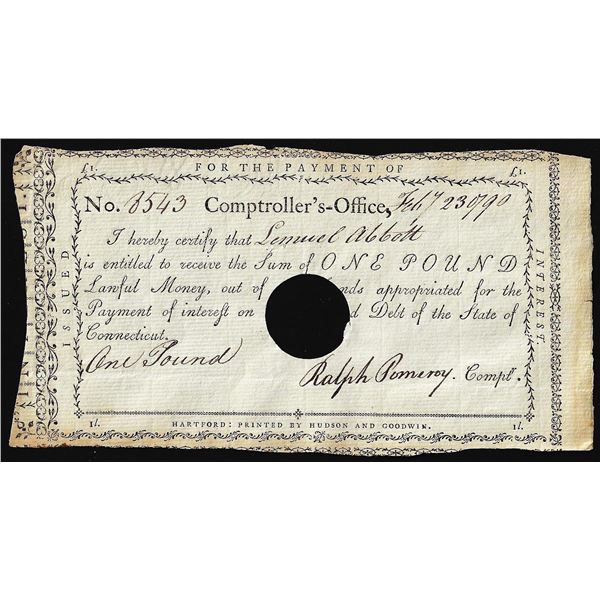 £1. FOR THE PAYMENT OF £1.
No. 8543 Comptroller's-Office, Feby 23d 1790
I hereby certify that Lemuel Abbott
is entitled to receive the Sum of ONE POUND
Lawful Money, out of nds appropriated for the
Payment of interest on d Debt of the State of
Connecticut.
One Pound
Ralph Pomeroy. Comptr.
1l. HARTFORD: PRINTED BY HUDSON AND GOODWIN. 1l.
ISSUED
INTEREST.